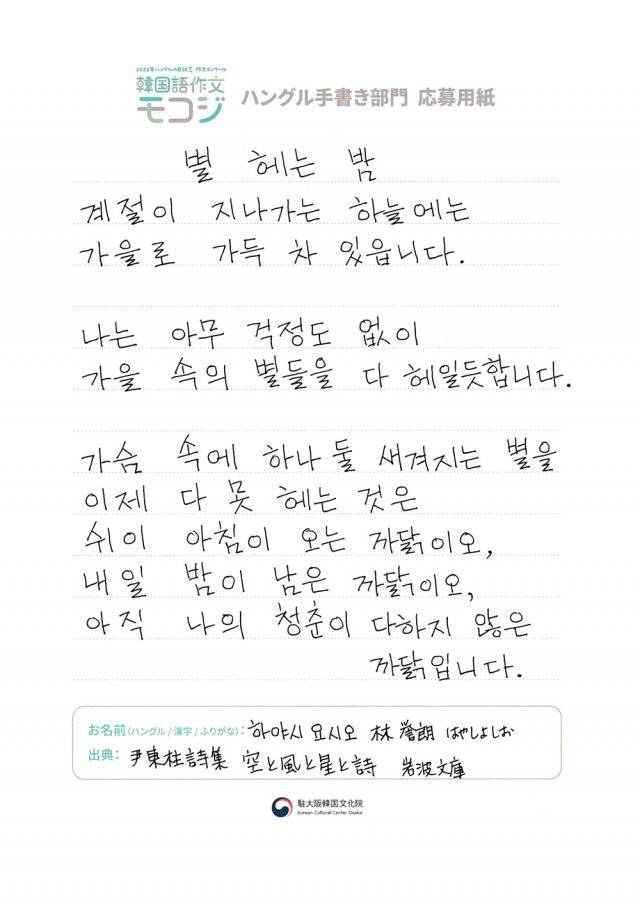 2022年ハングルの日記念 作文コンクール
韓国語作文
モコジ
ハングル手書き部門 応募用紙
별 헤는 밤
계절이 지나가는 하늘에는
가을로 가득 차 있읍니다.
나는 아무 걱정도 없이
가을 속의 별들을 다 헤일듯합니다.
가슴 속에 하나 둘 새겨지는 별을
이제 다 못 헤는 것은
쉬이 아침이 오는 까닭이오,
내일 밤이 남은 까닭이오,
아직 나의 청춘이 다하지 않은
까닭입니다.
お名前(ハングル / 漢字 / ふりがな): 하야시 요시오 林 誉朗 はやしよしお
出典: 尹東柱詩集 空と風と星と詩 岩波文庫
駐大阪韓国文化院
Korean Cultural Center Osaka